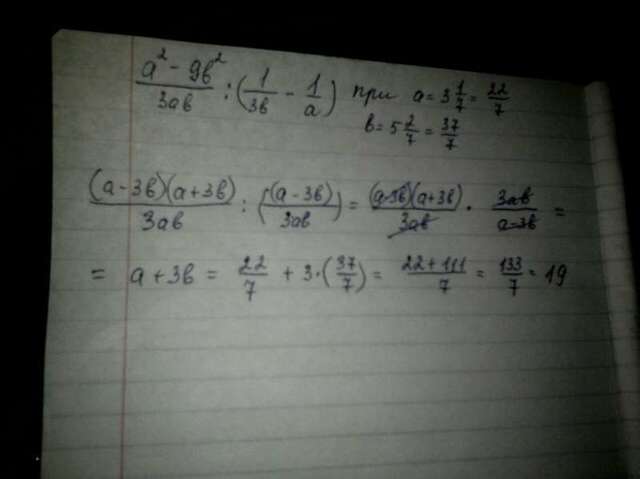 a² - 9b² / 3ab : (1/3b - 1/a) при a = 3 1/7 = 22/7
b = 5 2/7 = 37/7
(a-3b)(a+3b) / 3ab : ((a-3b) / 3ab) = (a-3b)(a+3b) / 3ab · 3ab / a-3b =
= a+3b = 22/7 + 3·(37/7) = 22+111 / 7 = 133/7 = 19